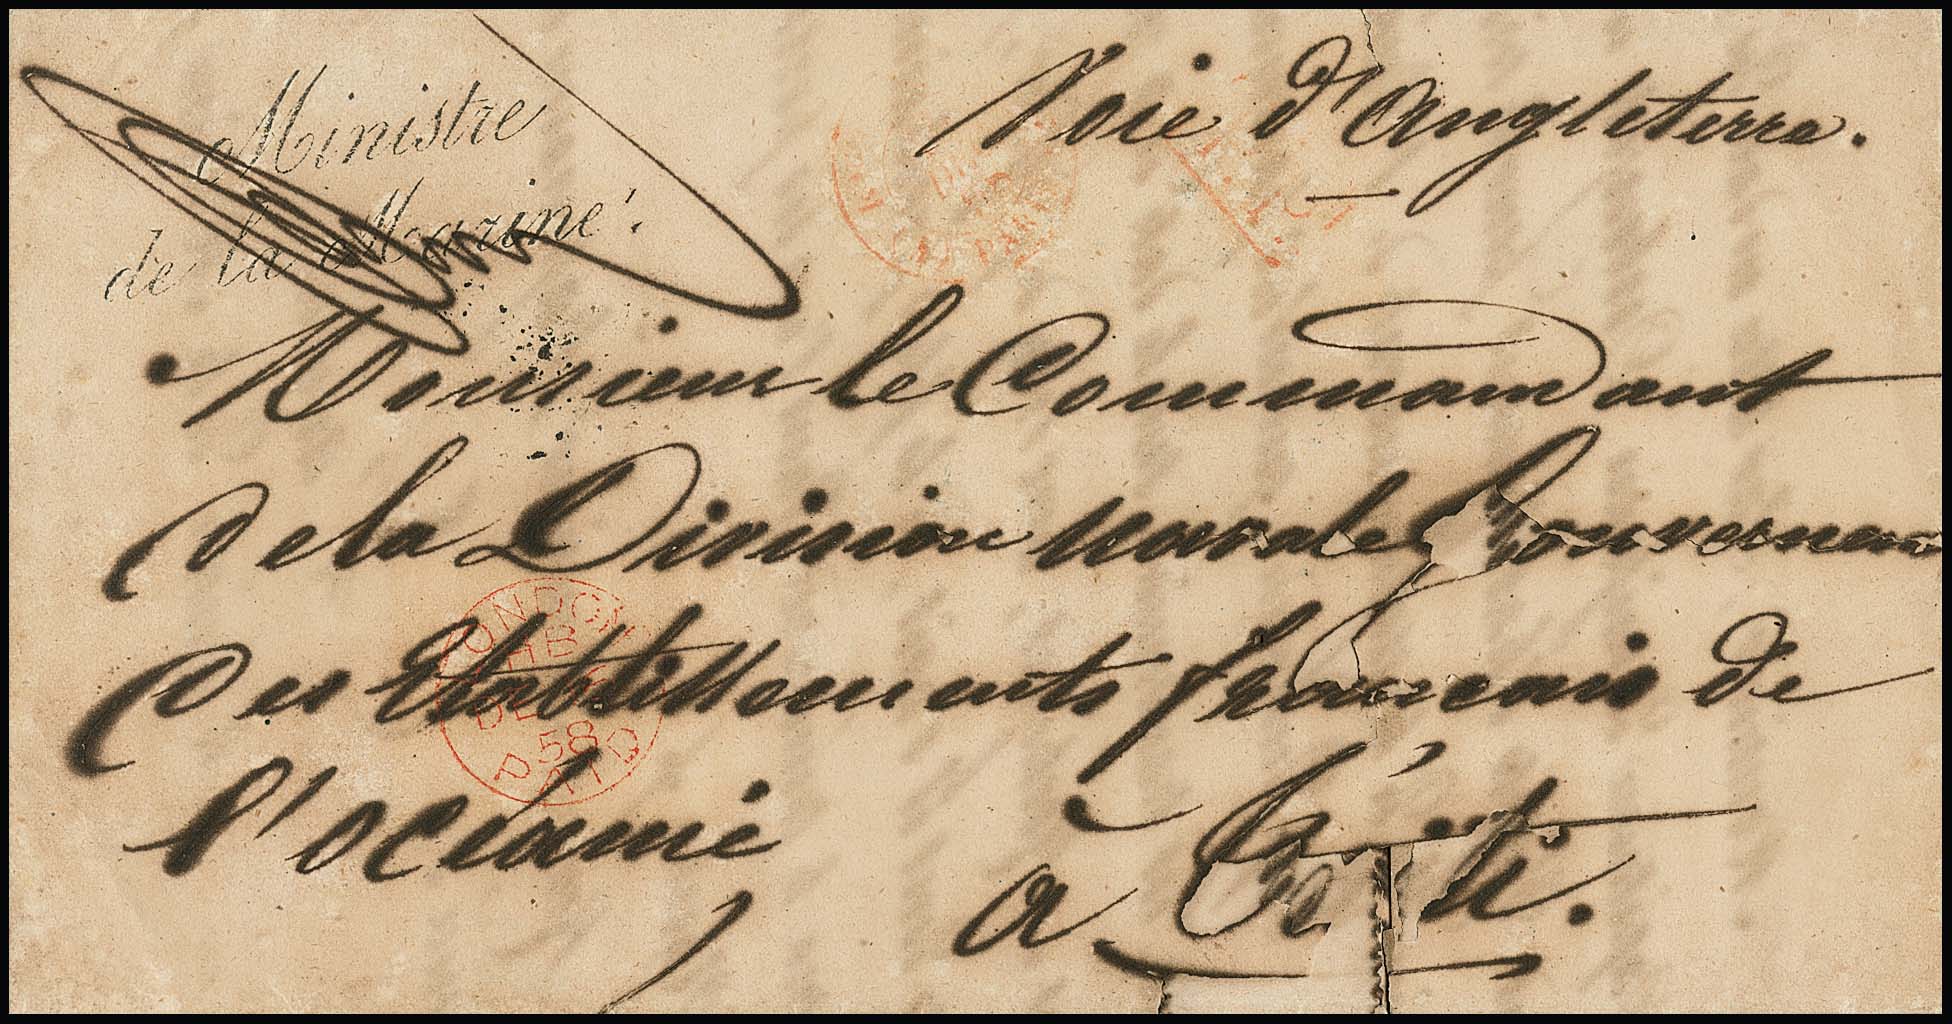 Voie d'Angleterre.
Ministre
de la Marine.
Monsieur le Commandant
de la Division navale, Gouverneur
des Etablissements français de
l'océanie
a Taïti.
LONDON
HB
DE
58
PAID